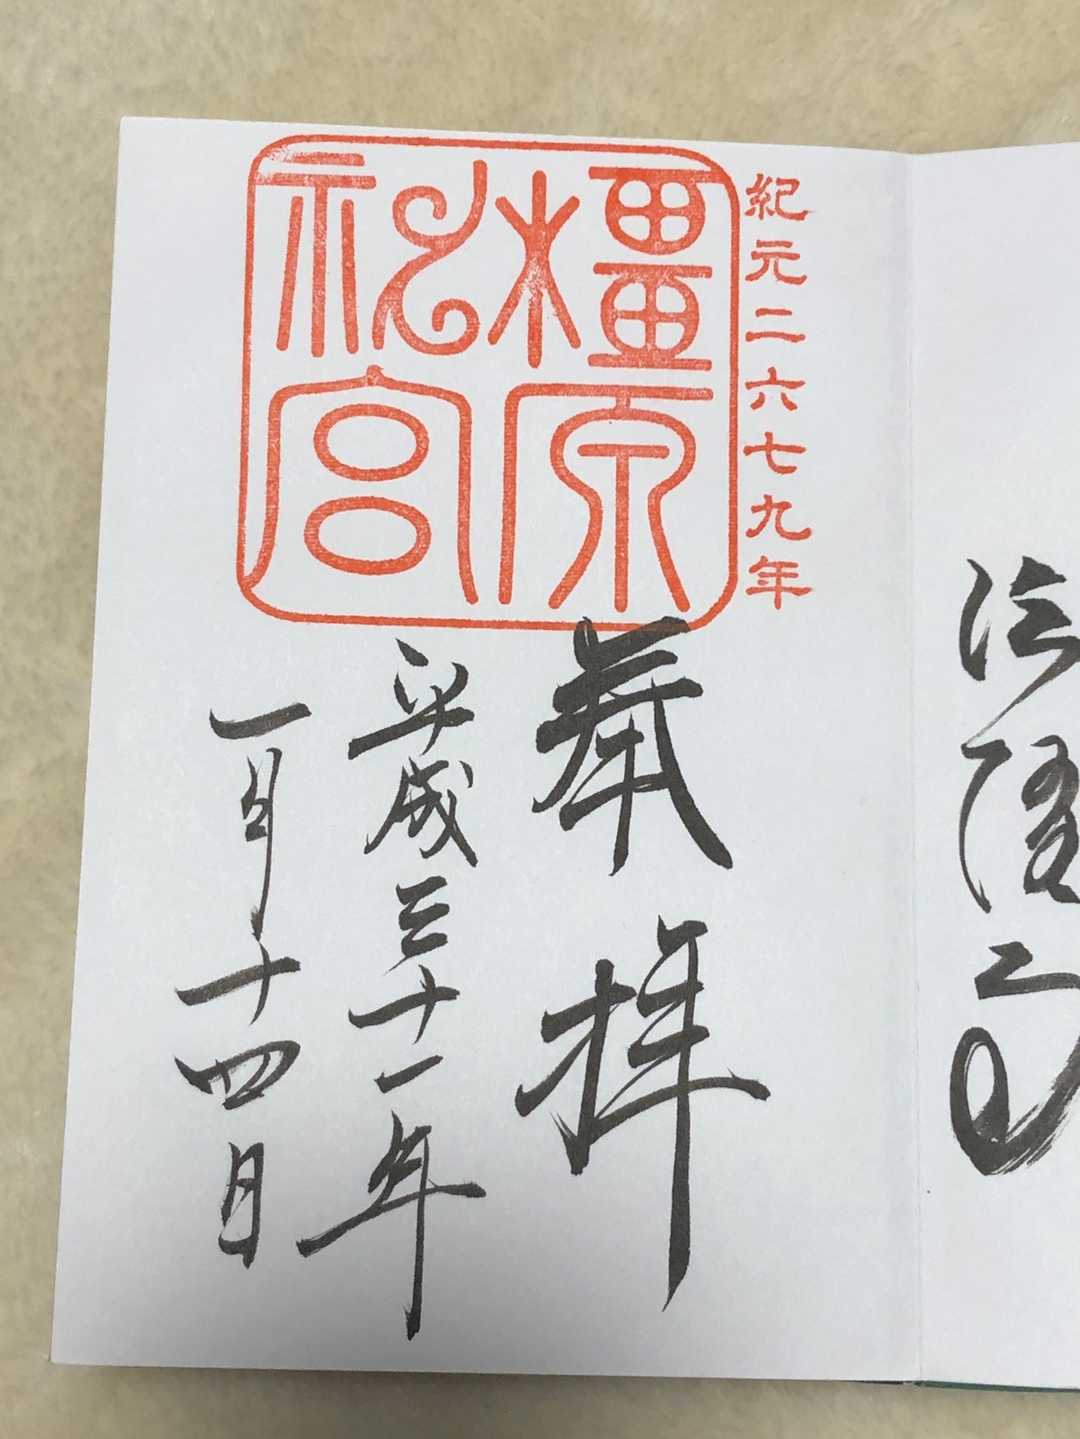 法隆寺
紀元二六七九年
橿原神宮
奉拝
平成三十一年
一月十四日